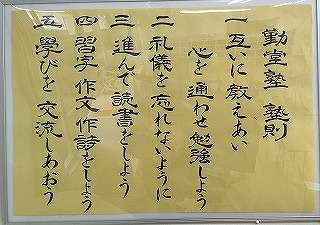 勤堂塾 塾則
一 互いに教えあい
心を通わせ勉強しよう
二 礼儀を忘れないように
三 進んで読書をしよう
四 習字 作文 作詩をしよう
五 學びを交流しあおう